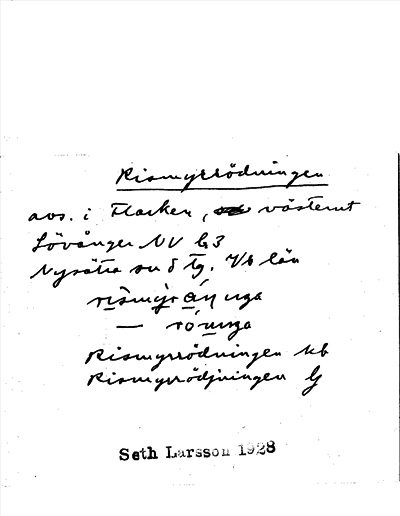 Rismyrrödningen
avs. i Flarken, västerut
Lövånger NV b3
Nysätra sn o tg. Vb län
rismyrån unga
— rönunga
Rismyrrödningen kb
Rismyrrödjningen Lj
Seth Larsson 1928